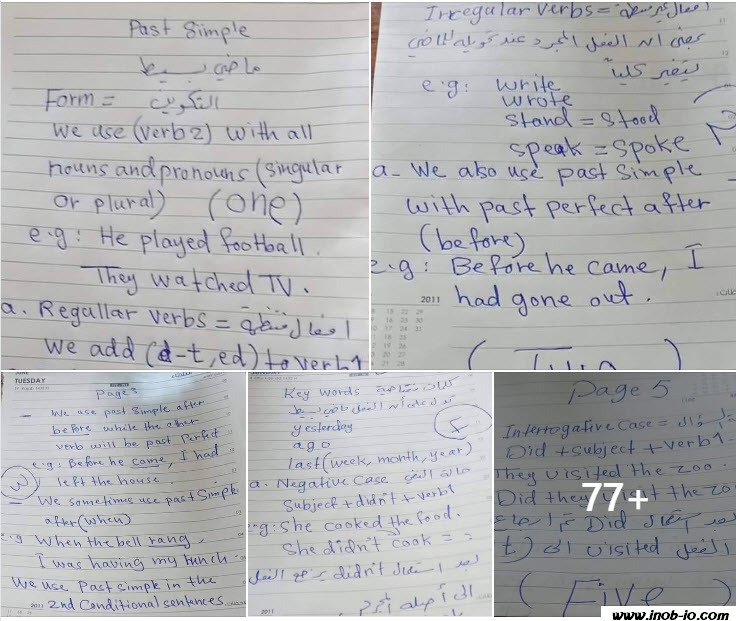 Past Simple
ماضي بسيط
Form = التكوين
We use (verb 2) with all
nouns and pronouns (singular
or plural) (one)
e.g: He played football.
They watched TV.
a. Regullar verbs = افعال منتظمة
We add (d-t, ed) to verb 1
Irregular verbs = افعال غير منتظمة
يعني أن الفعل المجرد عند تحويله للماضي
يتغير كلياً
e.g: write
wrote
stand = stood
speak = spoke
a- We also use past simple
with past perfect after
(before)
e.g: Before he came, I
2011 had gone out.
(Two)
TUESDAY
Page 3
- We use past simple after
before while the other
verb will be past perfect
e.g: Before he came, I had
left the house.
- We sometimes use past simple
after (when)
e.g When the bell rang,
I was having my lunch
We use past simple in the
2011 2nd Conditional sentences
Key words كلمات مفتاحية
تدل على أن الفعل ماضي بسيط
yesterday
ago
last (week, month, year)
a. Negative Case حالة النفي
Subject + didn't + verb 1
e.g: She cooked the food.
She didn't cook = =
بعد استعمال didn't يرجع الفعل
الى أصله
2011
Page 5
Interrogative Case = السؤال
Did + subject + verb 1
They visited the zoo.
Did they visit the zoo
بعد استعمال Did
الفعل visited الى
(Five
77+
www.inob-io.com